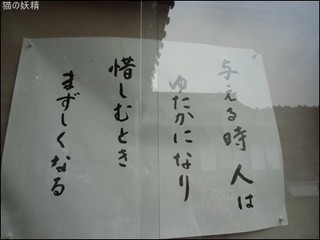 猫の妖精
与える時 人は
ゆたかになり
惜しむとき
まずしくなる